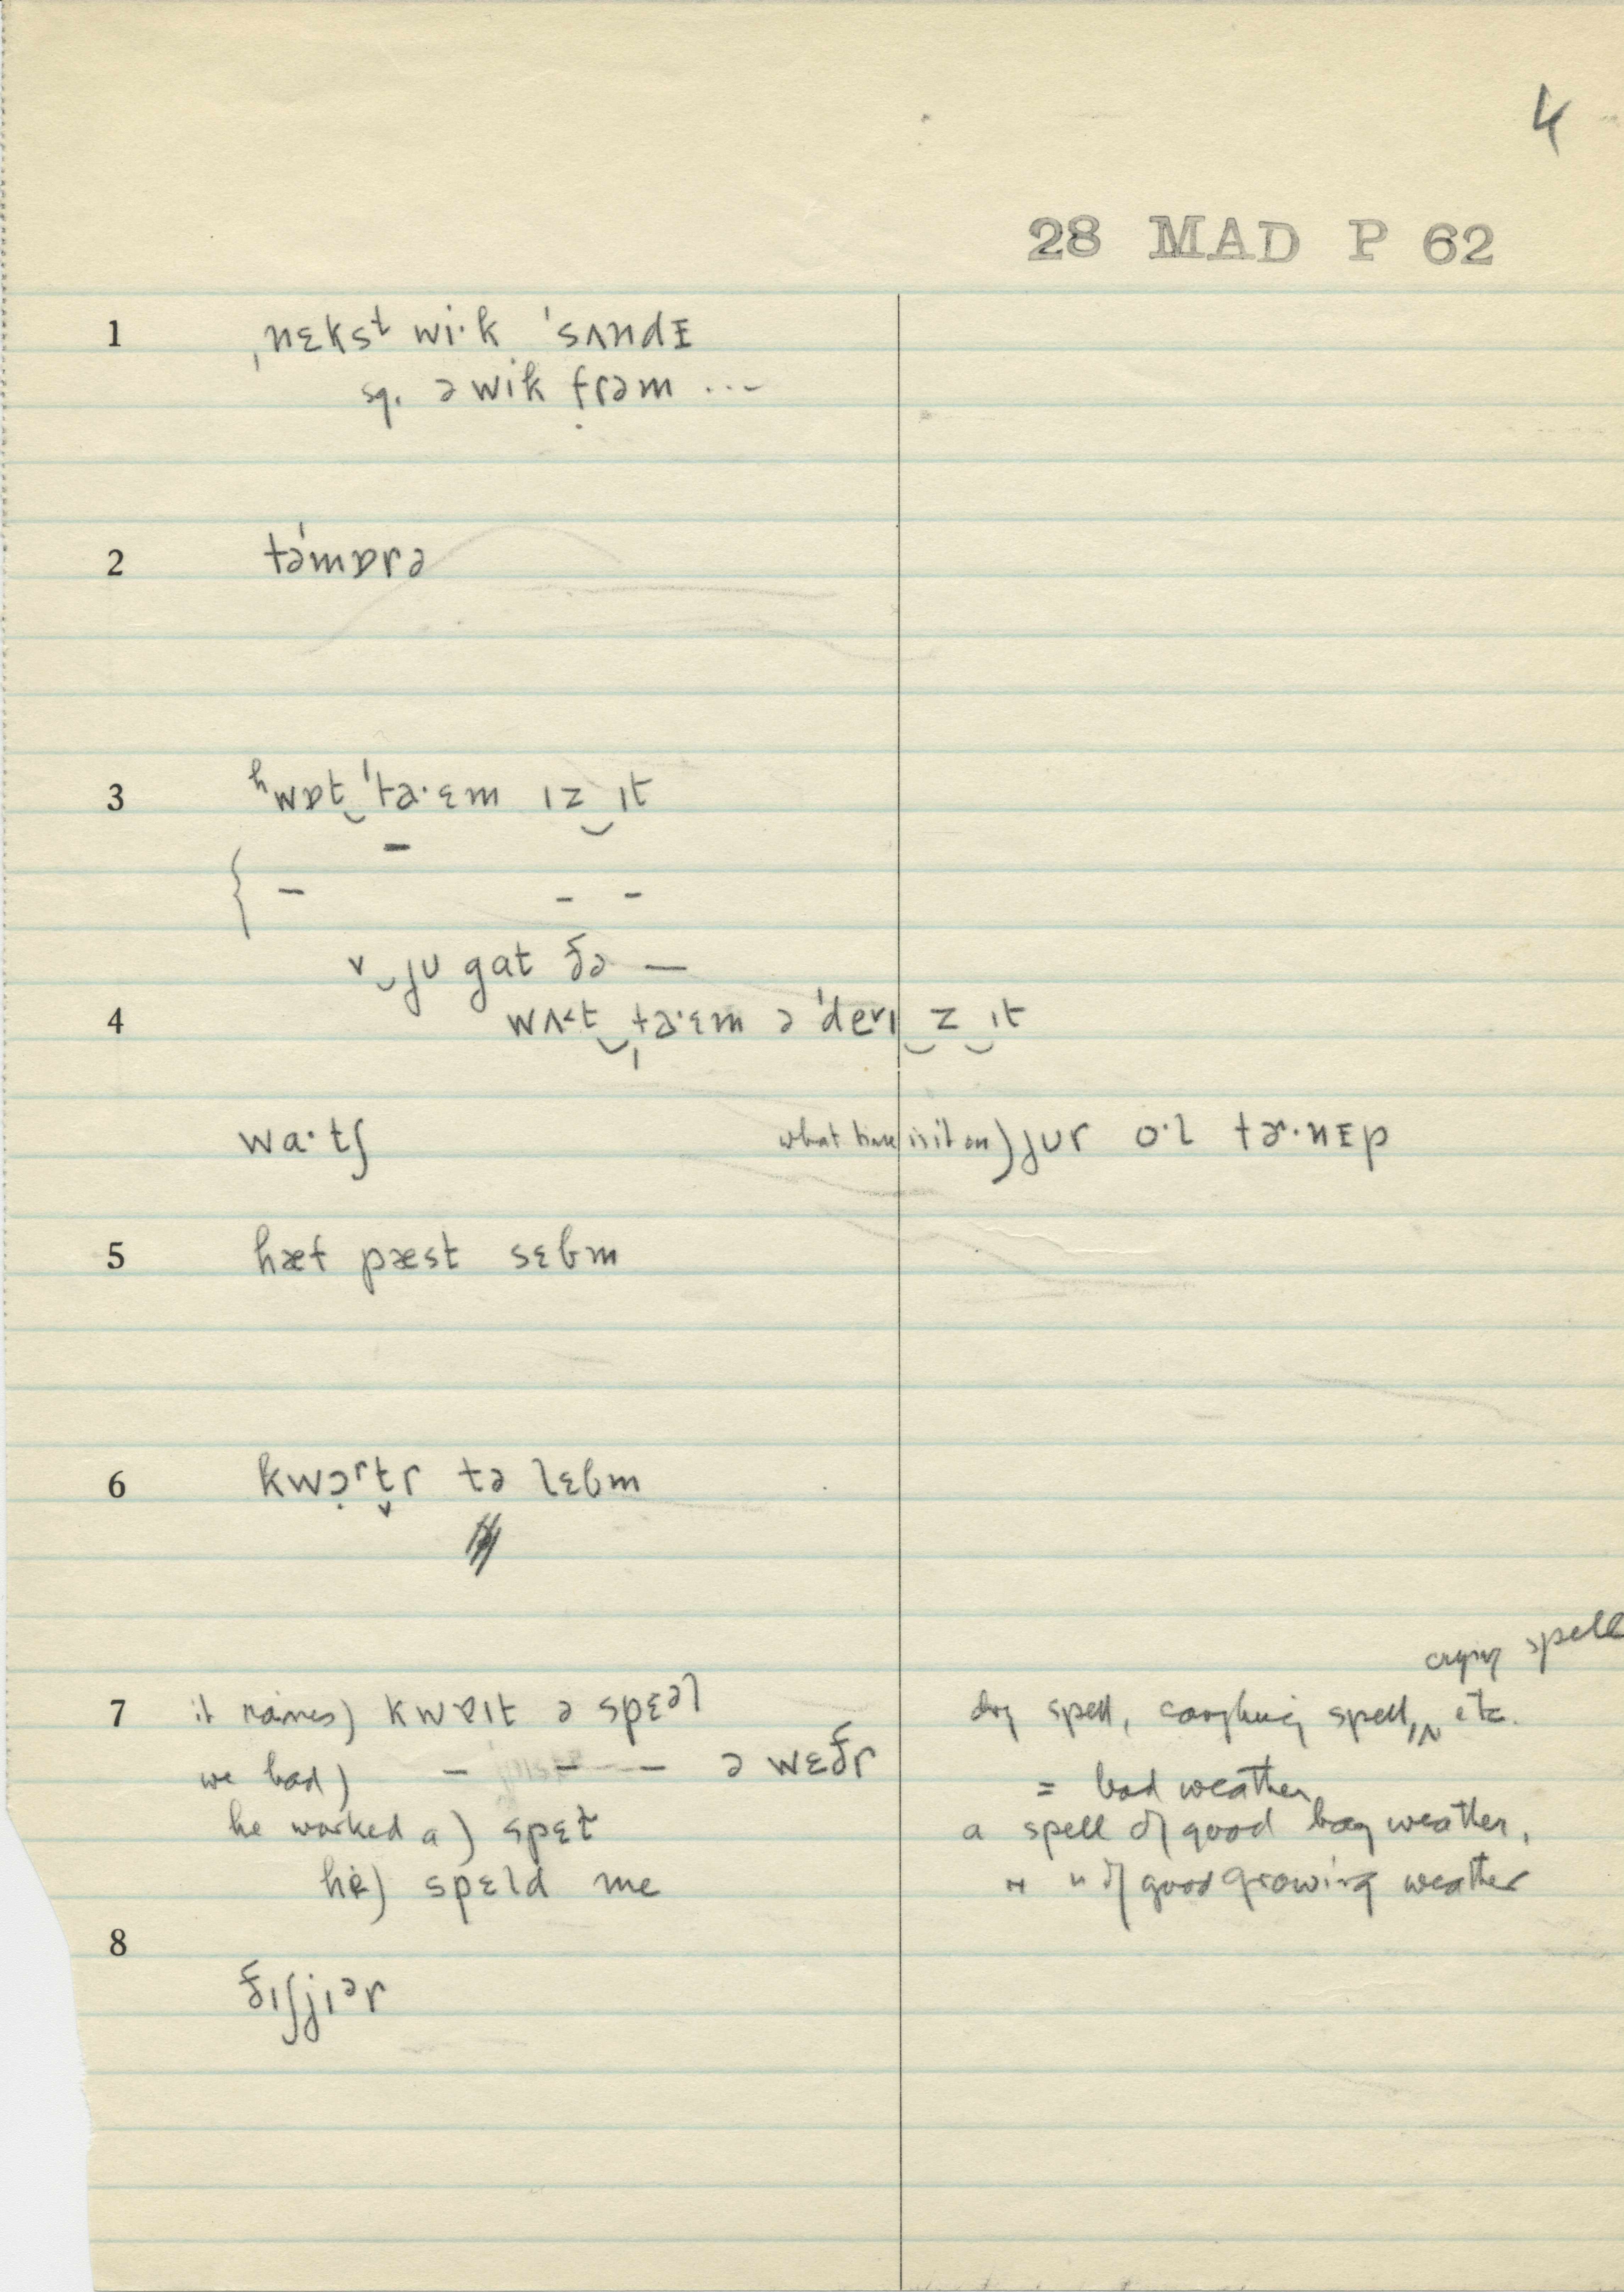 4
28 MAD P 62
1 ˌnɛksᵗ wi·k ˈsʌndɪ
sq. ə wik frəm ...
2 təˈmɒrə
3 ʰwɒt‿ˈtɑ·ɛm ɪz‿ɪt
{ – – – –
v‿ju gat ðə —
4 wʌ˂t‿ˌtɑ·ɛm ə ˈdevɪ‿z‿ɪt
wa·tʃ
what time is it on) jur o·l tɚ·nɪp
5 hæf pæst sɛbm
6 kwɔ̣ʳt̬r tə lɛbm
crying spell
7 it raines) kwɐɪt ə spɛəl
dry spell, coughing spell, ʌ etc.
we had) – – – ə wɛðr
= bad weather
he worked a) spɛt
a spell of good hay weather,
he) spɛld me
" " of good growing weather
8
ðɪʃjɪər